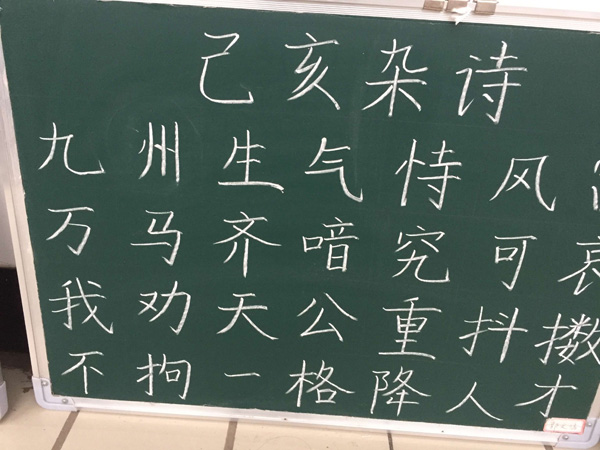 己亥杂诗
九州生气恃风
万马齐喑究可哀
我劝天公重抖擞
不拘一格降人才